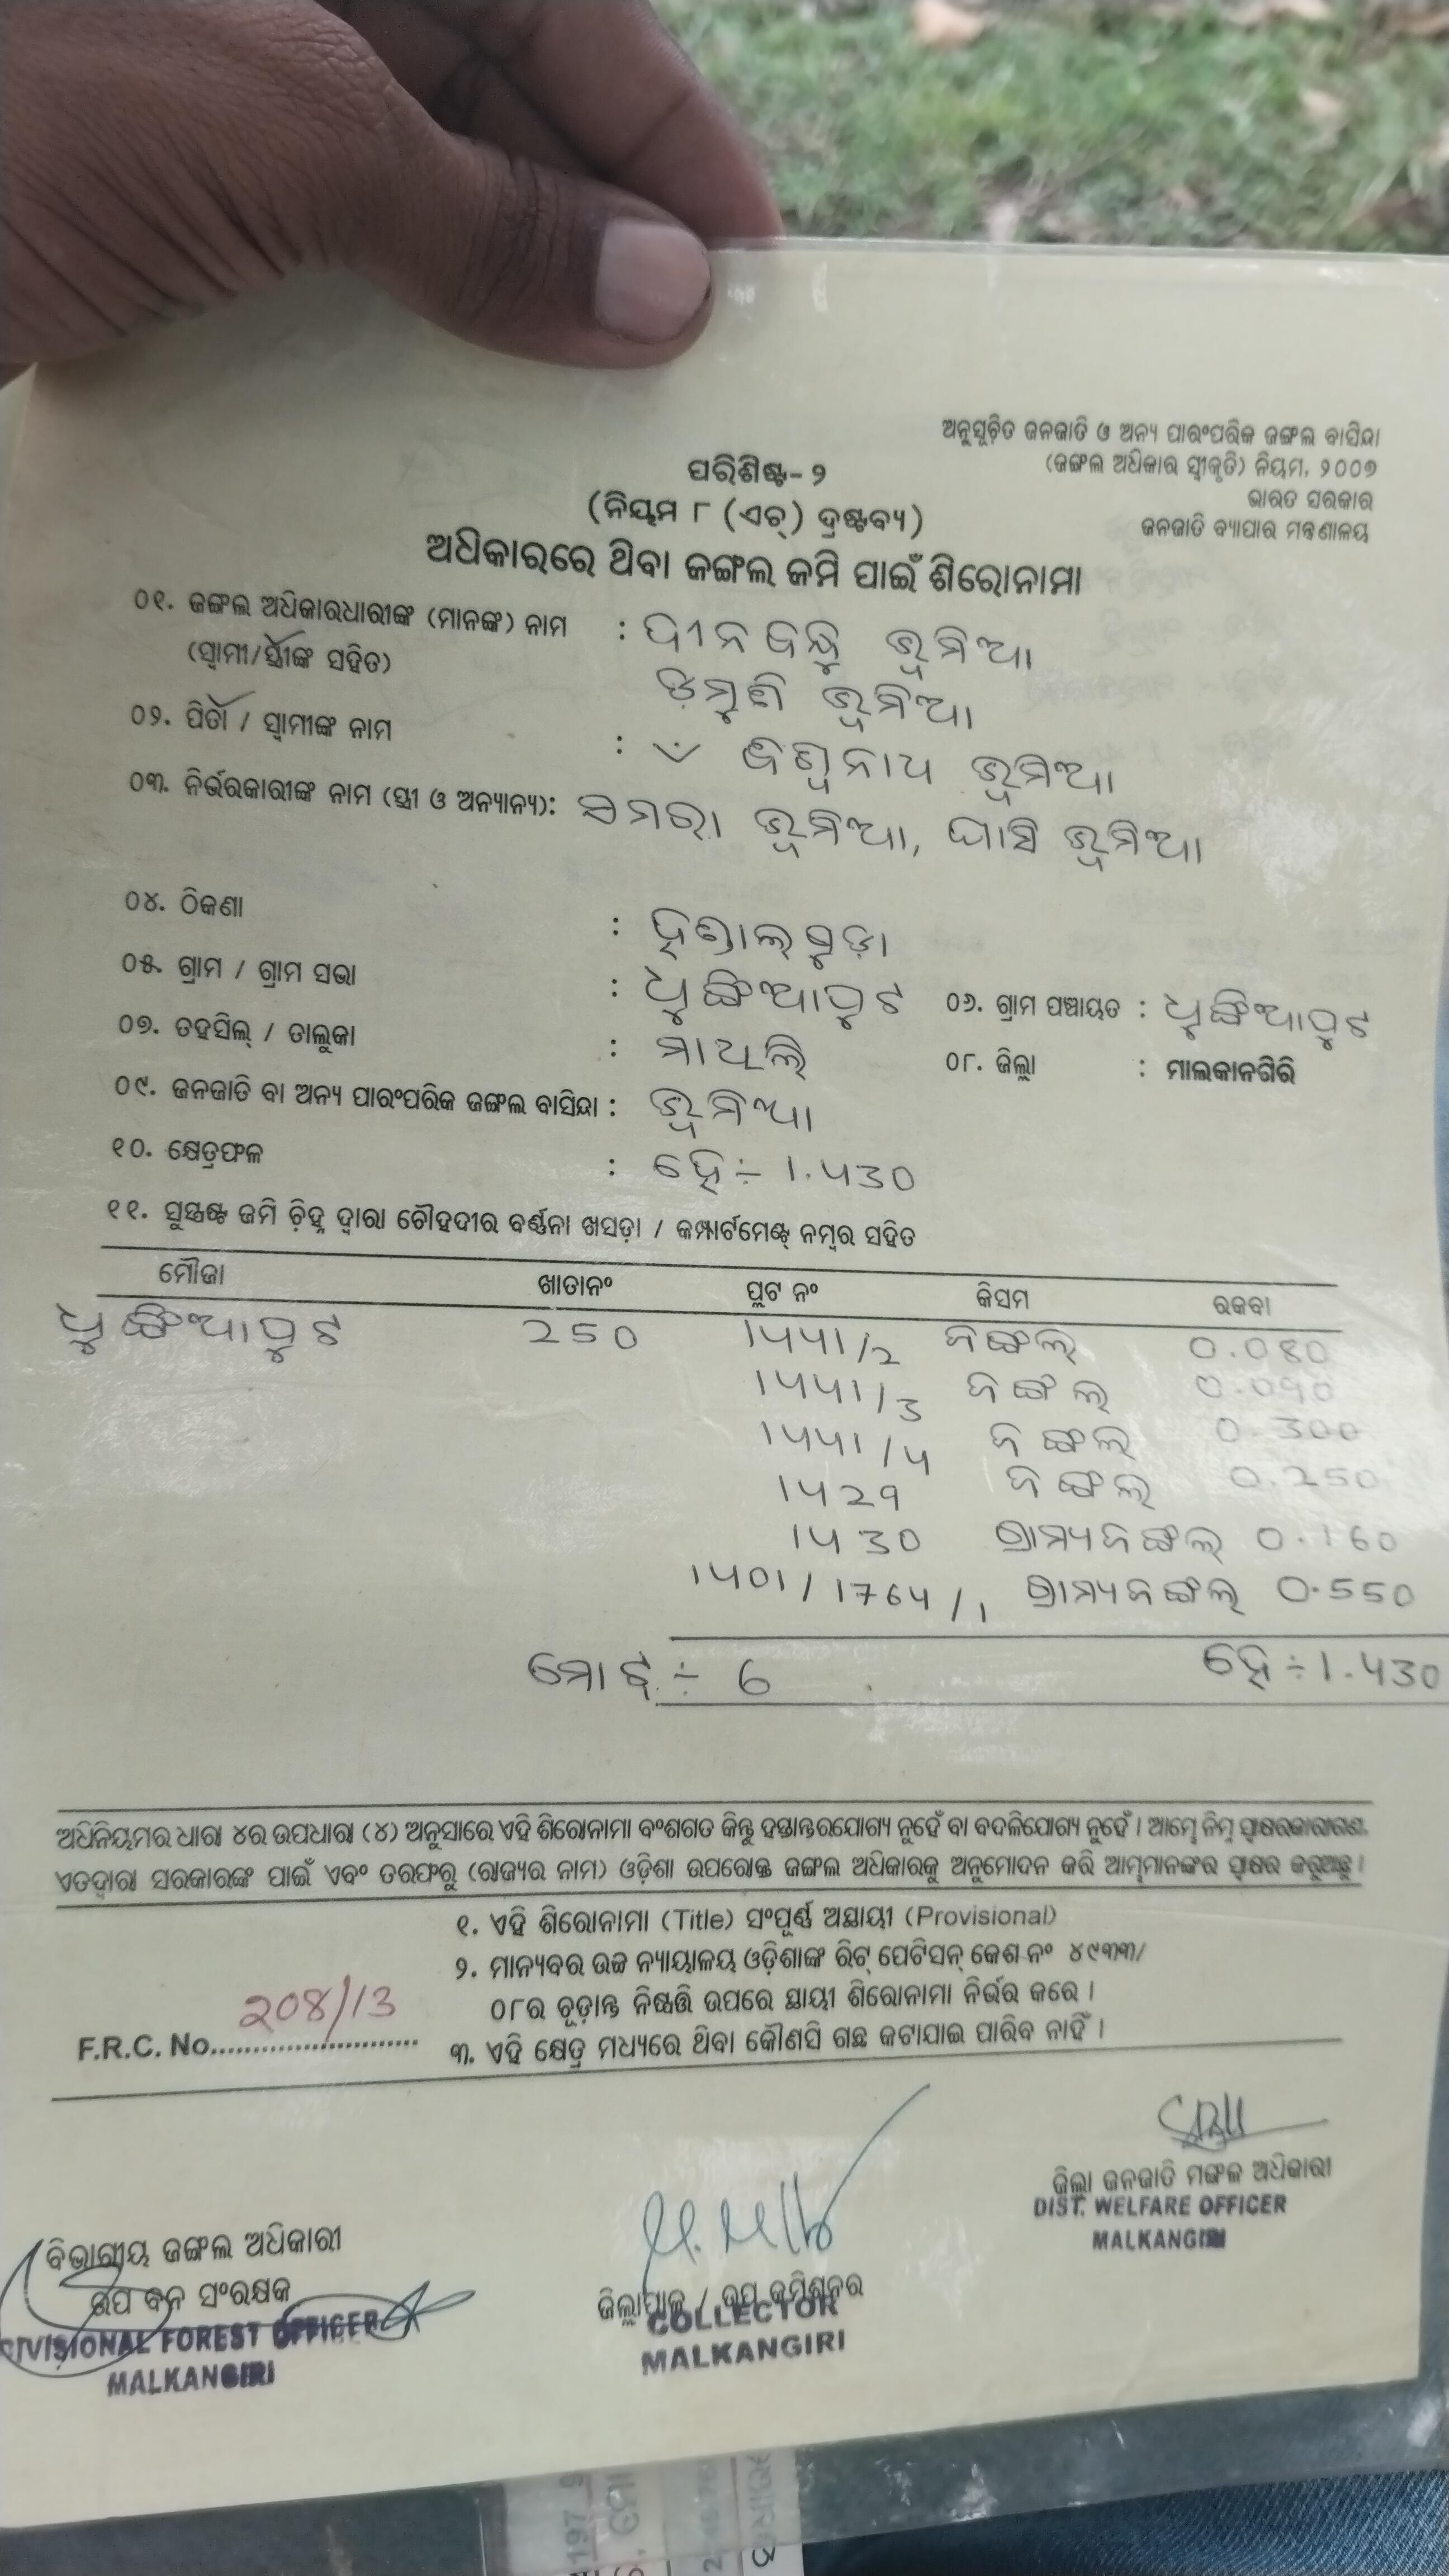 ଅନୁସୂଚିତ ଜନଜାତି ଓ ଅନ୍ୟ ପାରଂପରିକ ଜଙ୍ଗଲ ବାସିନ୍ଦା
(ଜଙ୍ଗଲ ଅଧିକାର ସ୍ୱୀକୃତି) ନିୟମ, ୨୦୦୭
ଭାରତ ସରକାର
ଜନଜାତି ବ୍ୟାପାର ମନ୍ତ୍ରଣାଳୟ
ପରିଶିଷ୍ଟ- ୨
(ନିୟମ ୮ (ଏଚ୍) ଦ୍ରଷ୍ଟବ୍ୟ)
ଅଧିକାରରେ ଥିବା ଜଙ୍ଗଲ ଜମି ପାଇଁ ଶିରୋନାମା
୦୧. ଜଙ୍ଗଲ ଅଧିକାରଧାରୀଙ୍କ (ମାନଙ୍କ) ନାମ : ଦୀନବନ୍ଧୁ ଭୂମିଆ
(ସ୍ୱାମୀ/ସ୍ତ୍ରୀଙ୍କ ସହିତ) ଡମୁଣି ଭୂମିଆ
୦୨. ପିତା / ସ୍ୱାମୀଙ୍କ ନାମ : ବିଶ୍ୱନାଥ ଭୂମିଆ
୦୩. ନିର୍ଭରକାରୀଙ୍କ ନାମ (ସ୍ତ୍ରୀ ଓ ଅନ୍ୟାନ୍ୟ): ସମରା ଭୂମିଆ, ଘାସି ଭୂମିଆ
୦୪. ଠିକଣା : ହିଣ୍ଡାଲଗୁଡ଼ା
୦୫. ଗ୍ରାମ / ଗ୍ରାମ ସଭା : ଧୁଙ୍ଗିଆପୁଟ ୦୬. ଗ୍ରାମ ପଞ୍ଚାୟତ : ଧୁଙ୍ଗିଆପୁଟ
୦୭. ତହସିଲ୍ / ତାଲୁକା : ମାଥିଲି ୦୮. ଜିଲ୍ଲା : ମାଲକାନଗିରି
୦୯. ଜନଜାତି ବା ଅନ୍ୟ ପାରଂପରିକ ଜଙ୍ଗଲ ବାସିନ୍ଦା : ଭୂମିଆ
୧୦. କ୍ଷେତ୍ରଫଳ : ହେ÷ 1.430
୧୧. ସୁସ୍ପଷ୍ଟ ଜମି ଚିହ୍ନ ଦ୍ୱାରା ଚୌହଦୀର ବର୍ଣ୍ଣନା ଖସଡ଼ା / କମ୍ପାର୍ଟମେଣ୍ଟ୍ ନମ୍ବର ସହିତ
ମୌଜା ଖାତାନଂ ପ୍ଲଟ ନଂ କିସମ ରକବା
ଧୁଙ୍ଗିଆପୁଟ 250 1441/2 ଜଙ୍ଗଲ 0.080
1441/3 ଜଙ୍ଗଲ 0.090
1441/4 ଜଙ୍ଗଲ 0.300
1429 ଜଙ୍ଗଲ 0.250
1430 ଗ୍ରାମ୍ୟଜଙ୍ଗଲ 0.160
1401/1764/1 ଗ୍ରାମ୍ୟଜଙ୍ଗଲ 0.550
ମୋଟ ÷ 6 ହେ÷1.430
ଅଧିନିୟମର ଧାରା ୪ର ଉପଧାରା (୪) ଅନୁସାରେ ଏହି ଶିରୋନାମା ବଂଶଗତ କିନ୍ତୁ ହସ୍ତାନ୍ତରଯୋଗ୍ୟ ନୁହେଁ ବା ବଦଳିଯୋଗ୍ୟ ନୁହେଁ । ଆମ୍ଭେ ନିମ୍ନ ସ୍ୱାକ୍ଷରକାରୀଗଣ
ଏତଦ୍ୱାରା ସରକାରଙ୍କ ପାଇଁ ଏବଂ ତରଫରୁ (ରାଜ୍ୟର ନାମ) ଓଡ଼ିଶା ଉପରୋକ୍ତ ଜଙ୍ଗଲ ଅଧିକାରକୁ ଅନୁମୋଦନ କରି ଆମ୍ଭମାନଙ୍କର ସ୍ୱାକ୍ଷର କରୁଅଛୁ ।
୧. ଏହି ଶିରୋନାମା (Title) ସଂପୂର୍ଣ୍ଣ ଅସ୍ଥାୟୀ (Provisional)
୨. ମାନ୍ୟବର ଉଚ୍ଚ ନ୍ୟାୟାଳୟ ଓଡ଼ିଶାଙ୍କ ରିଟ୍ ପେଟିସନ୍ କେଶ ନଂ ୪୯୩୩/
୦୮ର ଚୂଡ଼ାନ୍ତ ନିଷ୍ପତ୍ତି ଉପରେ ସ୍ଥାୟୀ ଶିରୋନାମା ନିର୍ଭର କରେ ।
୩. ଏହି କ୍ଷେତ୍ର ମଧ୍ୟରେ ଥିବା କୌଣସି ଗଛ କଟାଯାଇ ପାରିବ ନାହିଁ ।
F.R.C. No. 208/13
ଜିଲ୍ଲା ଜନଜାତି ମଙ୍ଗଳ ଅଧିକାରୀ
DIST. WELFARE OFFICER
MALKANGIRI
ବିଭାଗୀୟ ଜଙ୍ଗଲ ଅଧିକାରୀ
ଉପ ବନ ସଂରକ୍ଷକ
DIVISIONAL FOREST OFFICER
MALKANGIRI
ଜିଲ୍ଲାପାଳ / ଉପ କମିଶନର
COLLECTOR
MALKANGIRI
197